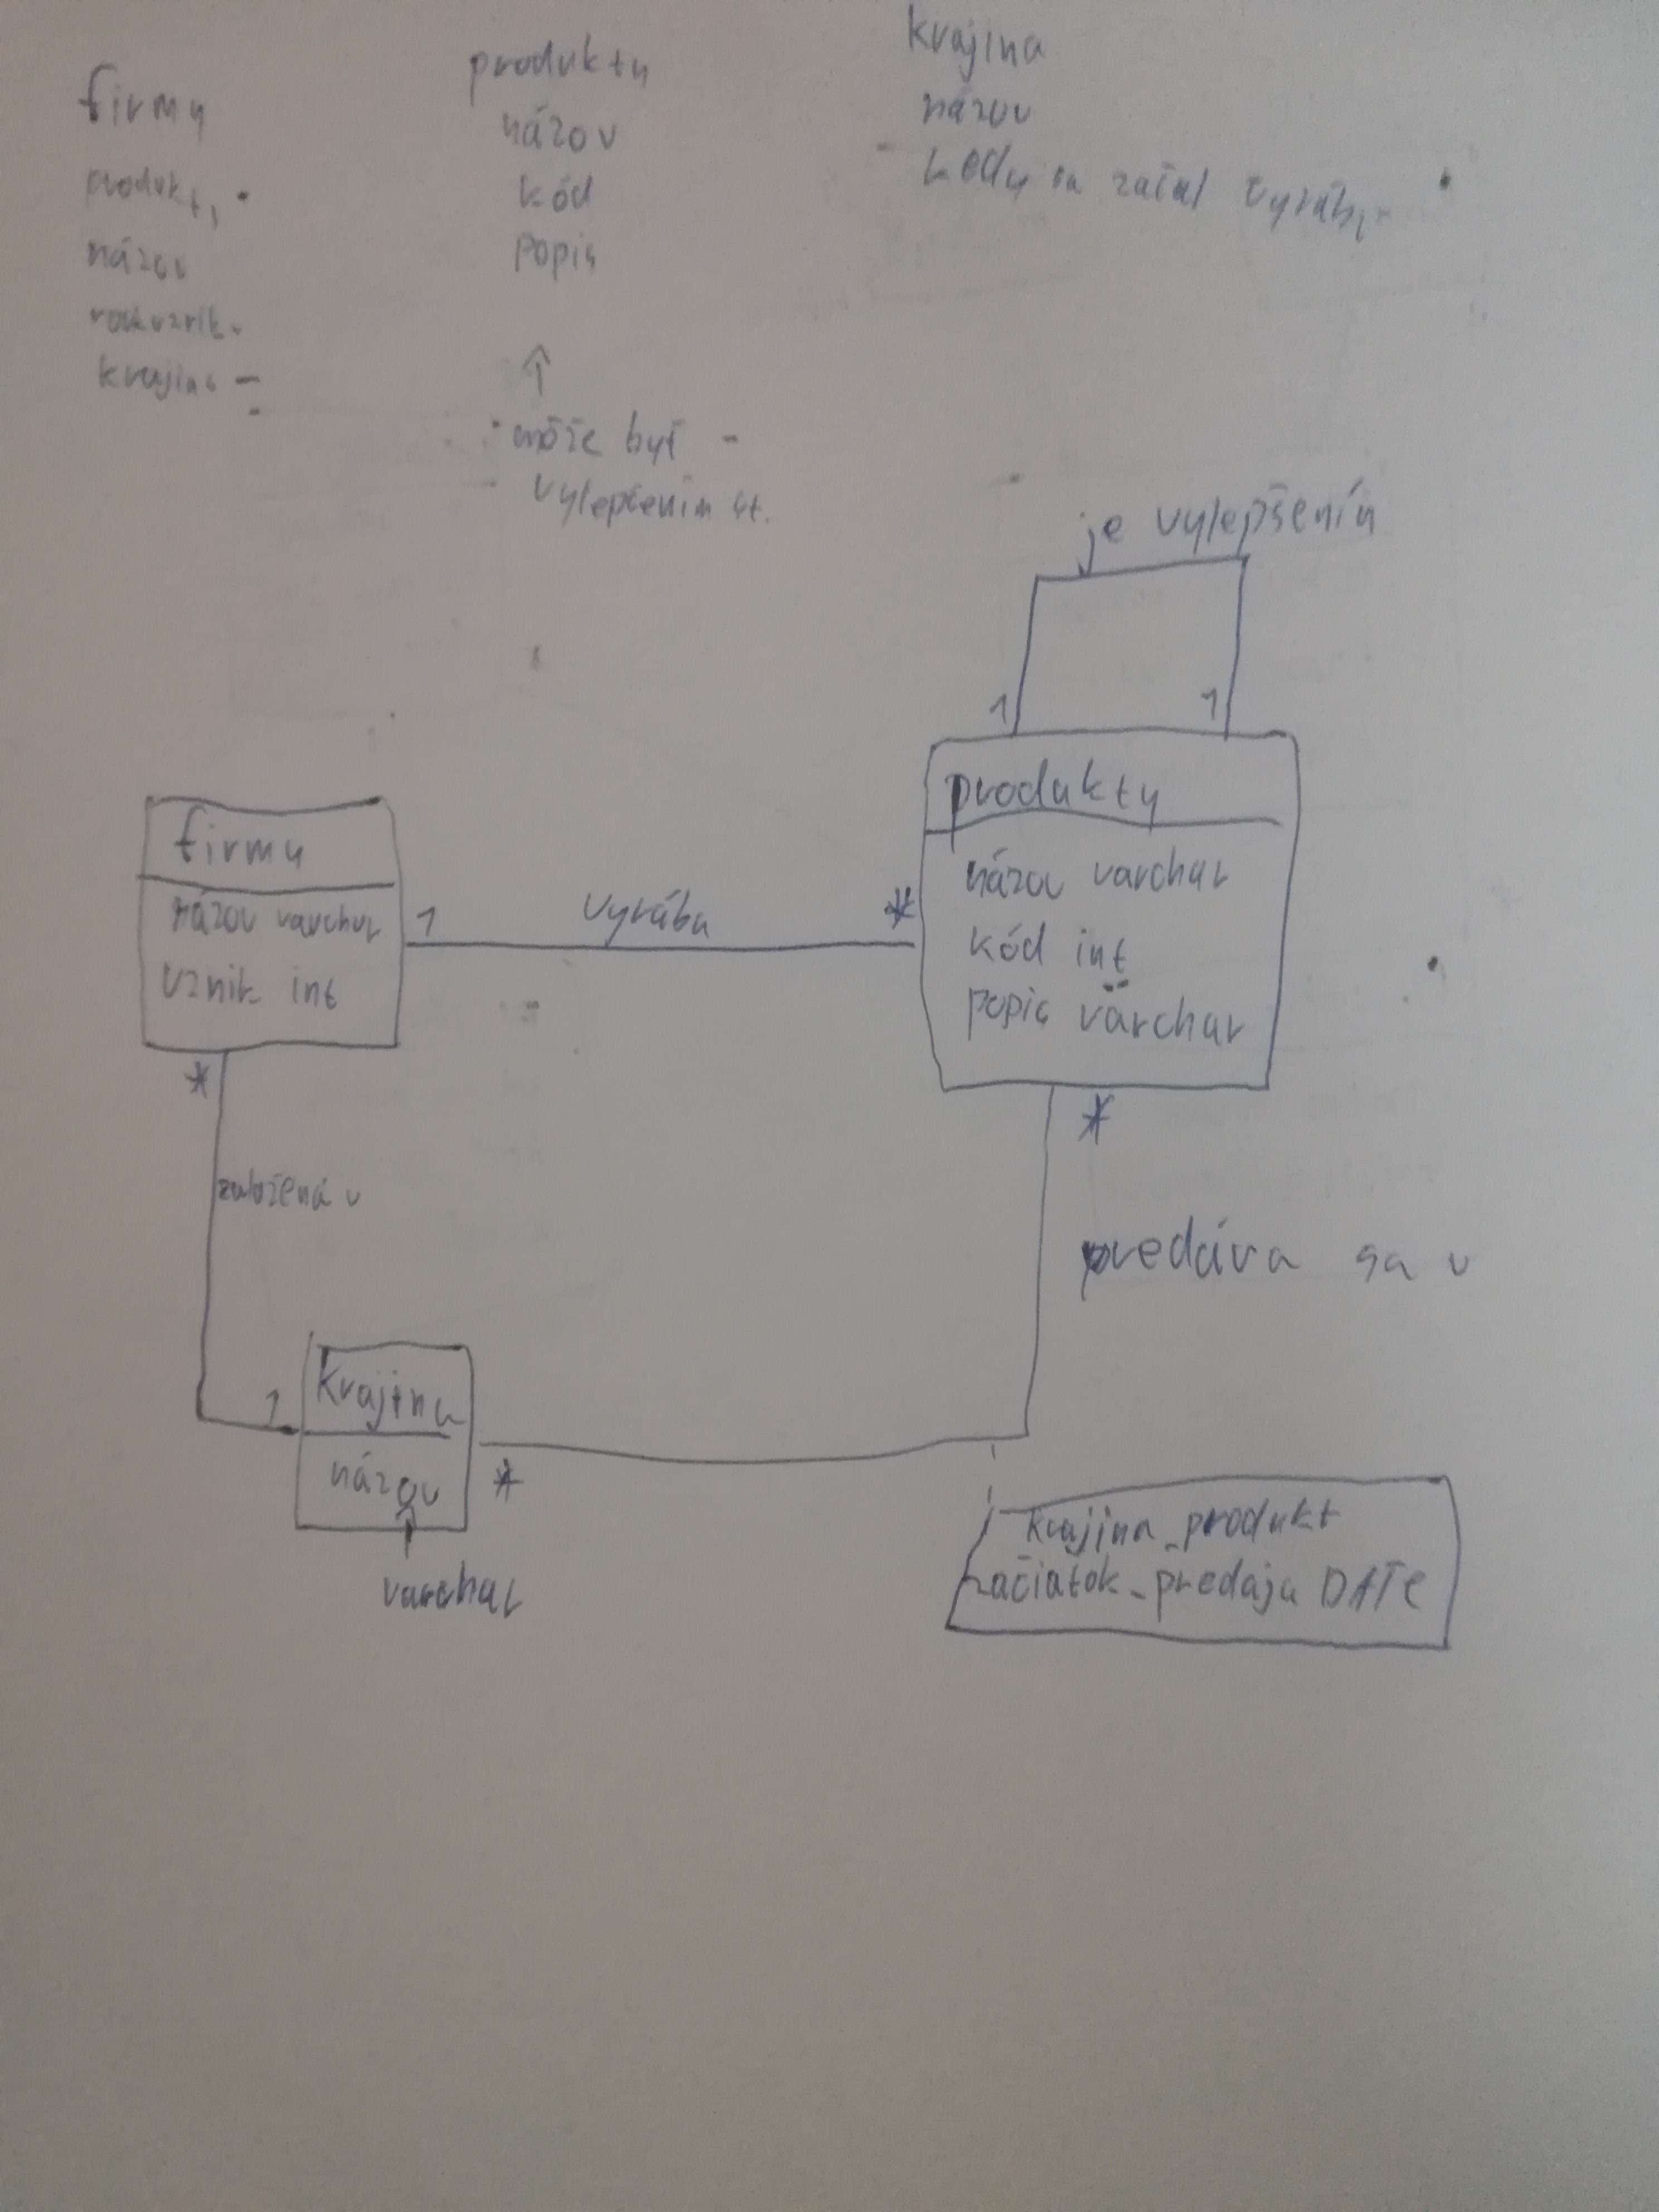 firmy
produkt,
názov
krajina -
produkty
názov
kód
popis
↑
môže byť -
vylepšením
krajina
názov
- kedy sa začal vyráb
je vylepšením
1 1
produkty
názov varchar
kód int
popis varchar
firmy
názov varchar
vznik int
1 vyrába *
*
založená v
1
*
predáva sa v
krajina
názov
varchar
*
krajina_produkt
začiatok_predaja DATE